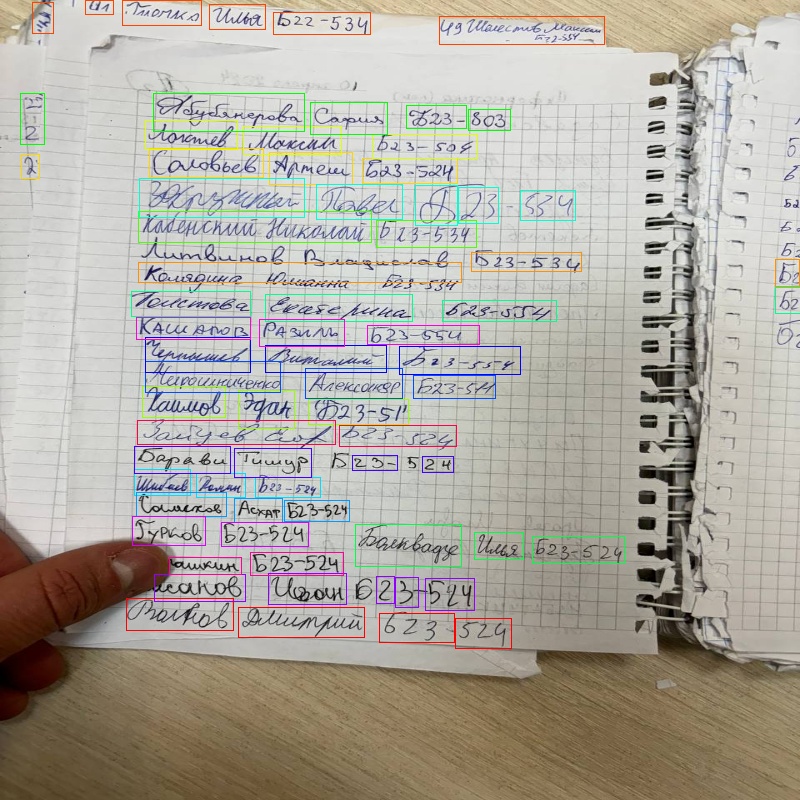 Илья Б22-534
49 Шелестов Максим
Б22-554
Абубякерова София Б23-803
Локтев Максим Б23-504
Соловьев Артем Б23-524
Павел Б23-534
Кобенский Николай Б23-534
Литвинов Владислав Б23-534
Колядина Юлианна Б23-534
Толстова Екатерина Б23-554
КАШАПОВ РАЗИЛЬ Б23-554
Чернышев Виталий Б23-554
Мирошниченко Александр Б23-511
Хаимов Эдан Б23-51
Зайцев Егор Б23-524
Барави Тимур Б23-524
Шибаев Роман Б23-524
Асхат Б23-524
Гурков Б23-524
Болквадзе Илья Б23-524
ашкин Б23-524
Исанов Иван Б23-524
Волков Дмитрий Б23-524